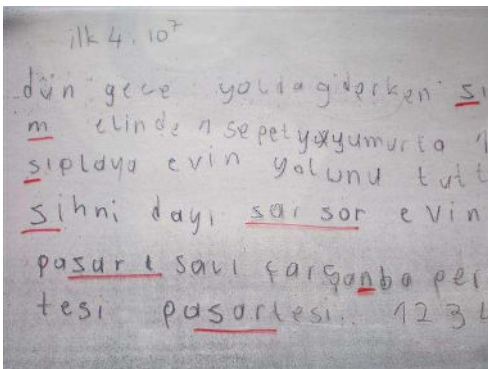 ilk 4. 10⁷
dün gece yolda giderken sı
m elinde n sepet yoxyumurta 1
sıpldya evin yolunu tutt
sihni dayı sar sor evin
pasar t salı çarşanba per
tesi pasartesi.. 1234